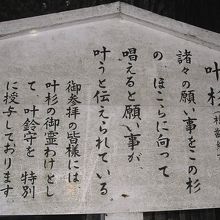 叶杉
諸々の願い事をこの杉
の ほこらに向って
唱えると願い事が
叶うと伝えられている
御参拝の皆様には
叶杉の御霊わけとし
て、叶鈴守を 特別
に授与しております